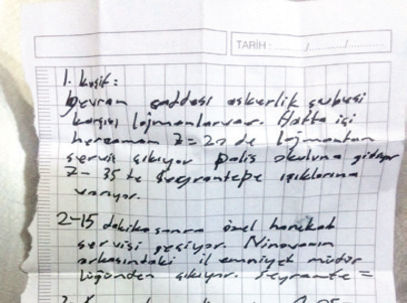 TARİH: / /
1. kişi:
Gevran caddesi askerlik şubesi
karşısı lojmanlar var. Hafta içi
her zaman 7=20 de lojmantan
servis çıkıyor polis okuluna gidiyor
7-35 te Seyrantepe ışıklarına
varıyor.
2-15 dakika sonra özel harekat
servisi geçiyor. Ninovanın
arkasındaki il emniyet müdür
lüğünden çıkıyor. Seyrante =